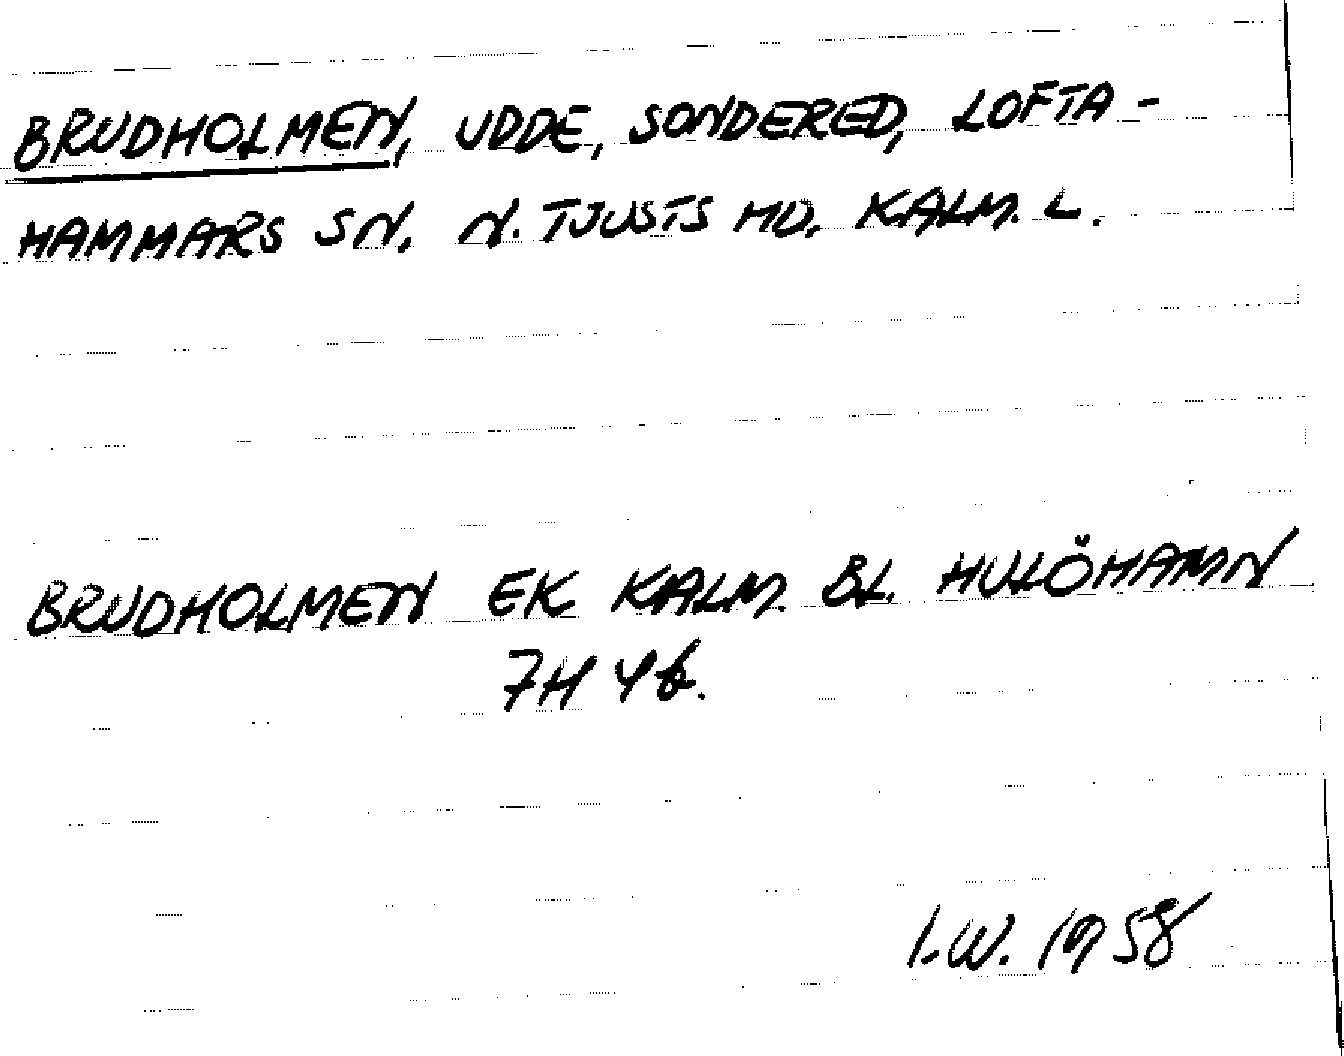 BRUDHOLMEN, UDDE, SONDERED, LOFTA-
HAMMARS SN. N. TJUSTS HD. KALM. L.
BRUDHOLMEN EK KALM. BL. HULÖHAMN
7H 4b.
I.W. 1958